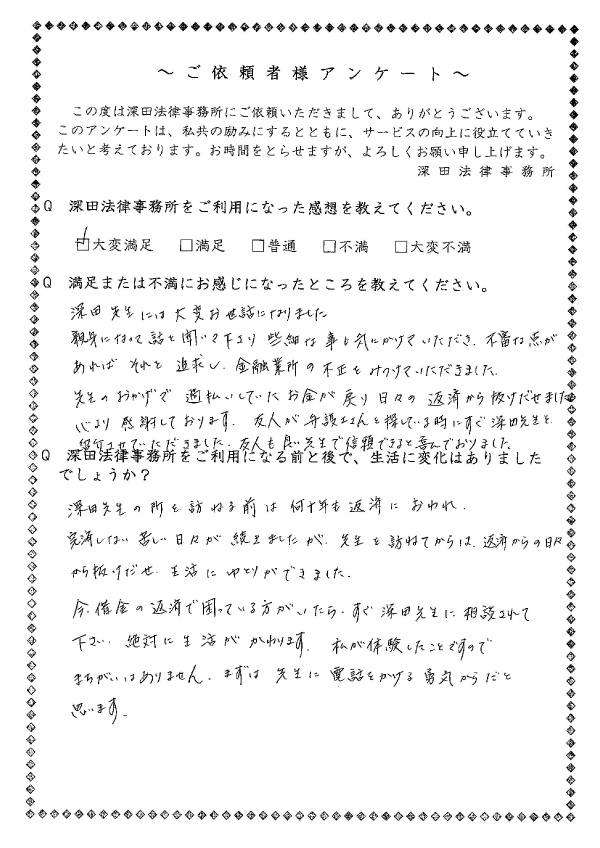 ～ご依頼者様アンケート～
この度は深田法律事務所にご依頼いただきまして、ありがとうございます。
このアンケートは、私共の励みにするとともに、サービスの向上に役立てていき
たいと考えております。お時間をとらせますが、よろしくお願い申し上げます。
深田法律事務所
Q 深田法律事務所をご利用になった感想を教えてください。
☑大変満足 □満足 □普通 □不満 □大変不満
Q 満足または不満にお感じになったところを教えてください。
深田先生には大変お世話になりました
親身になって話を聞いて下さり 些細な事も気にかけていただき、不審な点が
あれば それを 追求し、金融業所の不正をみつけていただきました。
先生のおかげで 過払いしていたお金が戻り日々の返済から抜けだせました
心より感謝しております。友人が弁護士さんを探している時にすぐ深田先生を
紹介させていただきました。友人も良い先生で信頼できると喜んでおりました。
Q 深田法律事務所をご利用になる前と後で、生活に変化はありました
でしょうか？
深田先生の所を訪ねる前は何十年も返済におわれ、
完済しない苦しい日々が続きましたが、先生を訪ねてからは、返済からの日々
から抜けだせ 生活にゆとりができました。
今、借金の返済で困っている方がいたら、すぐ深田先生に相談されて
下さい。絶対に生活がかわります。私が体験したことですので
まちがいはありません。まずは 先生に電話をかける勇気からだと
思います。